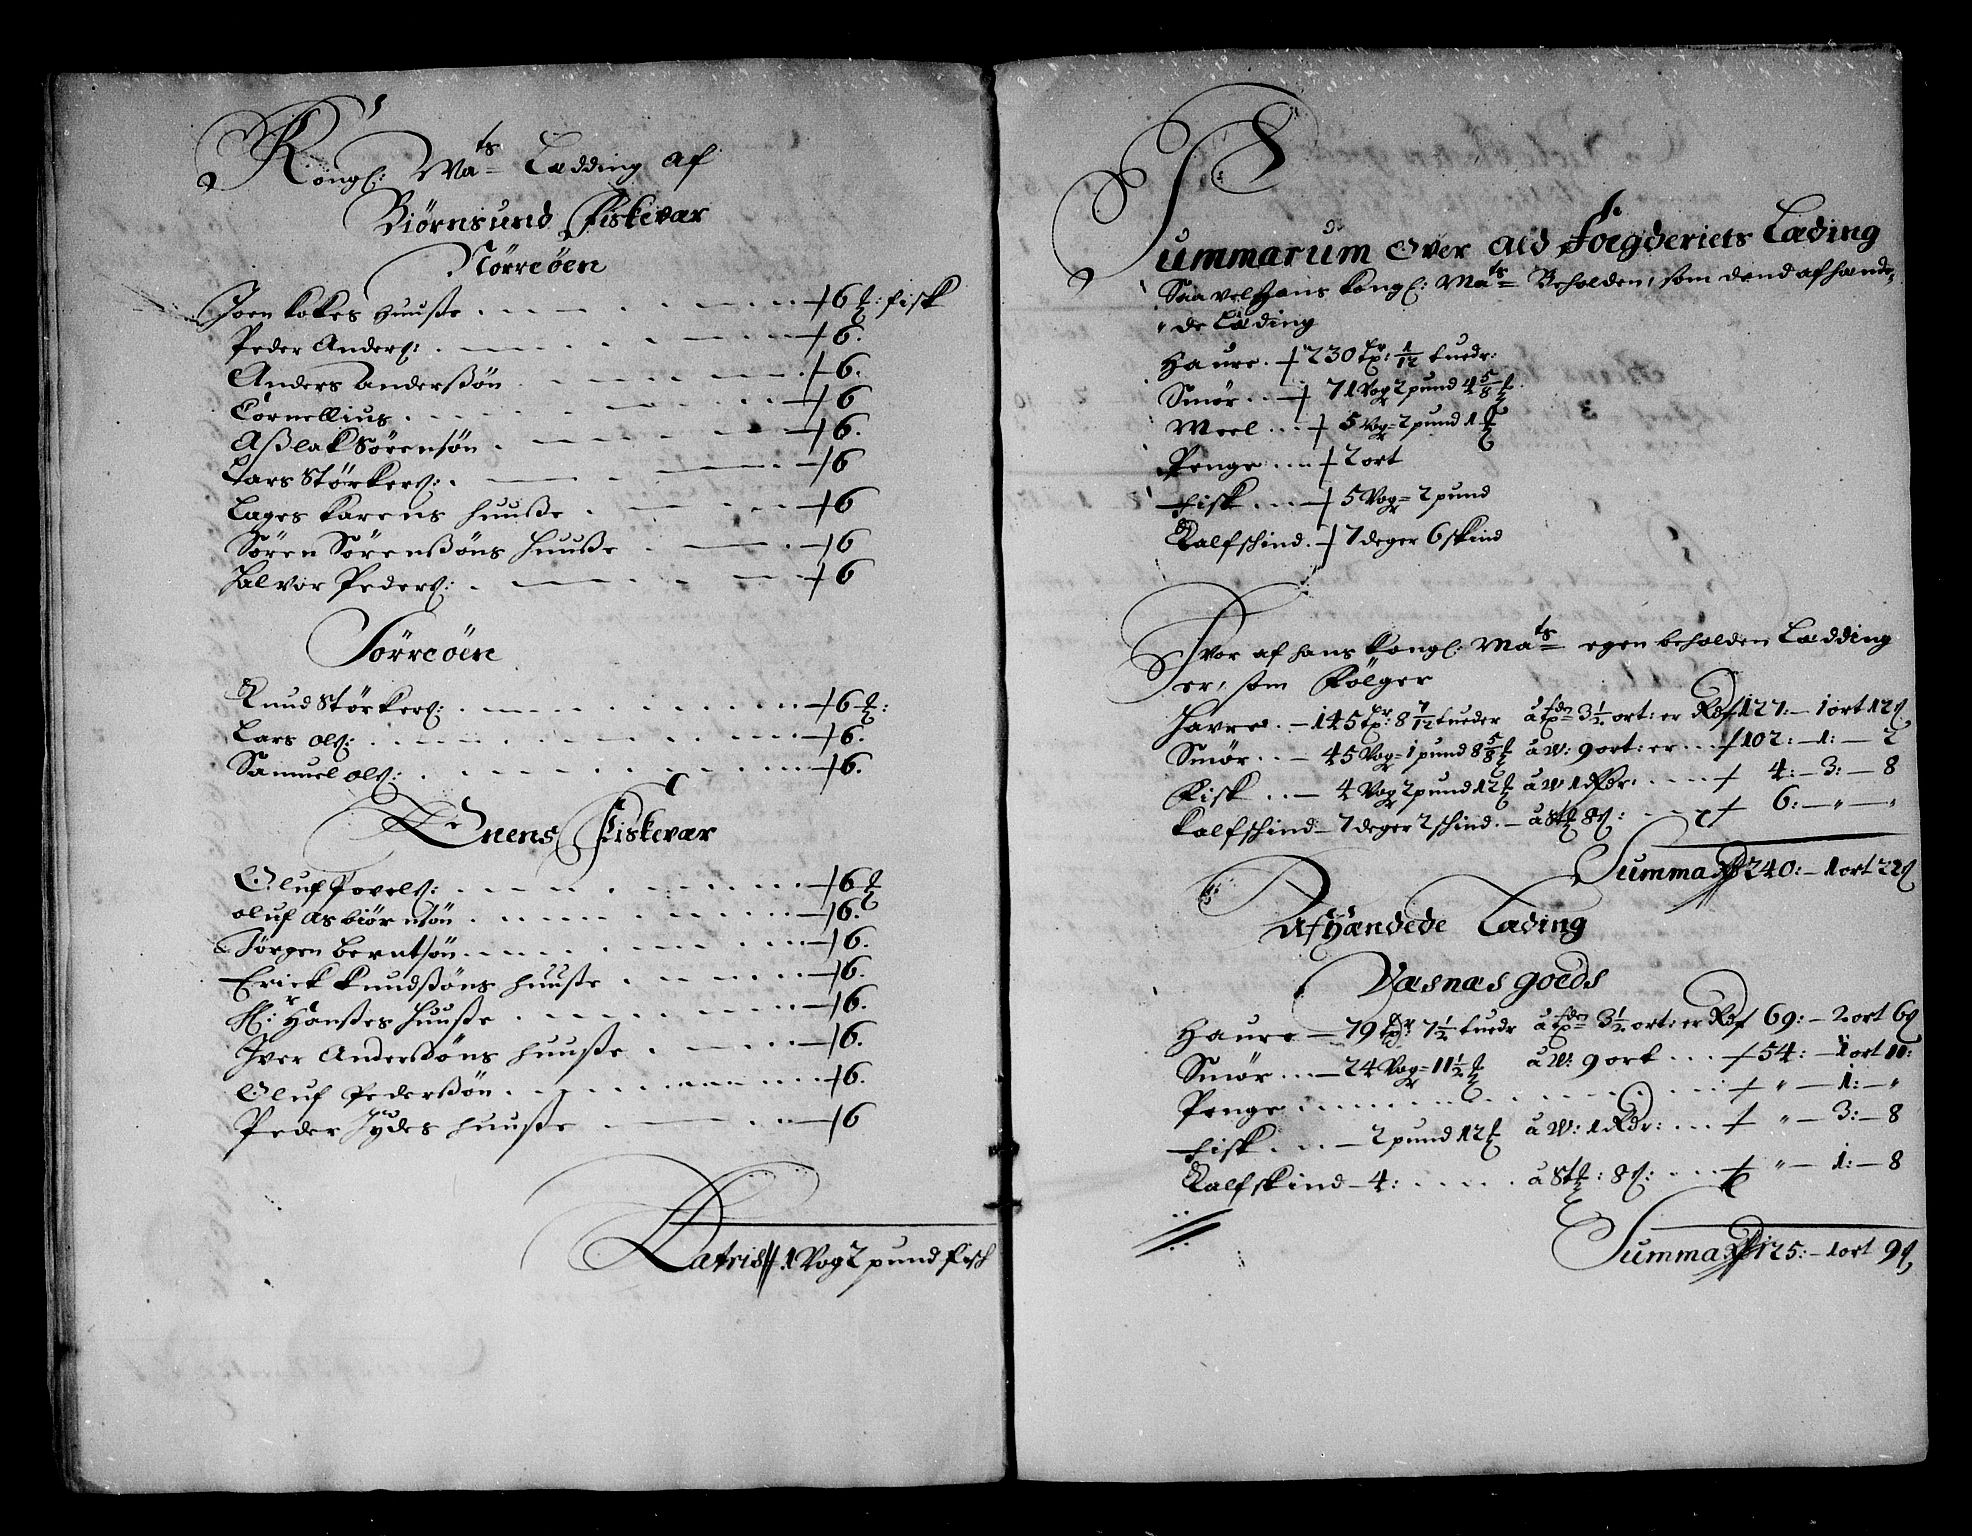 Kongl: Ma^ts Lædding af
Biørnsund Fiskevær
Nörreöen
Joen Kokes huuße . . . 6 ℔: fisk
Peder Anders: . . . 6.
Anders Anderßön . . . 6.
Cornellius . . . 6
Aßlak Sörensön . . . 6.
Lars Störkers: . . . 6
Lages Karens huuße . . . 6
Sören Sörenßöns huuße . . . 6
Halvor Peders: . . . 6
Sörreöen
Knud Störkers: . . . 6 ℔:
Lars ols: . . . 6.
Samuel ols: . . . 6.
Enens Fiskevær
Oluf Povels: . . . 6 ℔
oluf Asbiörnsön . . . 6.
Jörgen Berntsön . . . 6.
Erick Knudßöns huuße . . . 6.
Hr: Hanßes huuße . . . 6.
Iver Anderßöns huuße . . . 6.
Oluf Pederßön . . . 6.
Peder Jydes huuße . . . 6
Lateris 1 Vog 2 pund fisch
Summarum over ald Foegderiets Læding
Saavel Hans Kongl: Ma^ts Beholden, som dend afhænde,
de Læding
Haure . 230 tr: 1/12 tuedr:
Smör . . 71 Vog 2 pund 4 5/8 ℔
Meel . . . 5 Vog= 2 pund 1 ℔
Penge . . . 2 ort
Fisk . . . 5 Vog= 2 pund
Kalfschind . 7 deger 6 skind
Hvor af hans Kongl: Ma^ts egen beholden Lædding
er, som Fölger
Havre . – 145 tr: 8 7/12 tueder à tdr 3 1/2 ort: er Rdr 127: – 1 ort 12 s.
Smör . . – 45 Vog= 1 pund 8 5/8 ℔ à W: 9 ort: er . . . 102: – 1: – 2
Fisk . . – 4 Vog 2 pund 12 ℔ à W 1 Rdr: . . . 4: – 3: – 8
Kalfschind – 7 deger 2 schind. – à St: 8 s: . . . 6: – " – "
Summa Rdr 240: – 1 ort 22 s
Afhændede Lading
Væsnæs goeds
Haure – 79 tr: 7 1/2 tuedr à tdr 3 1/2 ort: er Rdr 69: – 2 ort 6 s
Smör . . . – 24 Vog= 11 1/2 ℔ à W: 9 ort . . . 54: – 1 ort 11:
Penge . . . " – 1: – "
Fisk . . . – 2 pund 12 ℔ à W: 1 Rdr: . . . " – 3: – 8
Kalfskind – 4: . . . à St: 8 s: . . . " – 1: – 8
Summa Rdr 125: – 1 ort 9 s